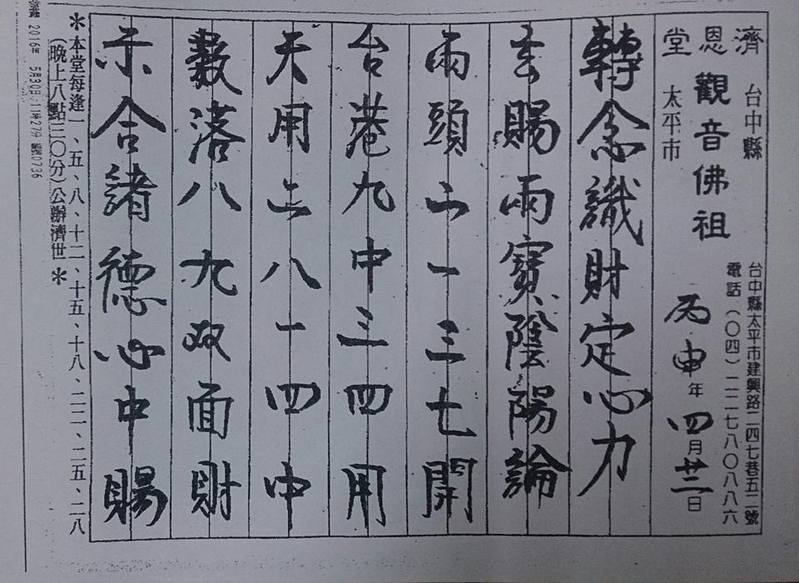 濟恩堂
台中縣太平市
觀音佛祖
台中縣太平市建興路二四七巷五二號
電話(〇四)二二七八〇八八六
丙申年四月廿二日
轉念識財定心力
玄賜兩寶陰陽論
兩頭二一三七開
台港九中三四用
天用二八一四中
數落八九双面財
示合諸德心中賜
*本堂每逢一、五、八、十二、十五、十八、二二、二五、二八
(晚上八點三〇分)公辦濟世*
2016年 5月30日 11時27分